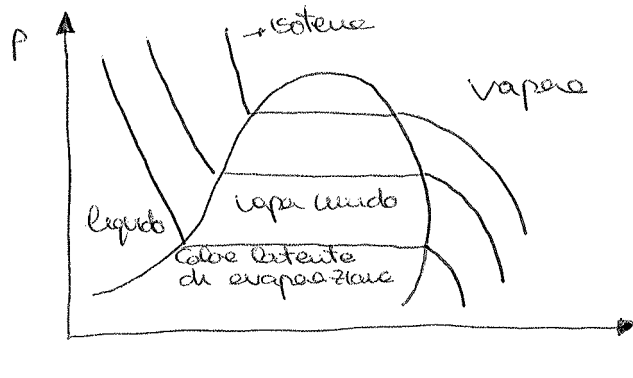 P
→ isoterme
vapore
liquido
vapor umido
Calore latente
di evaporazione